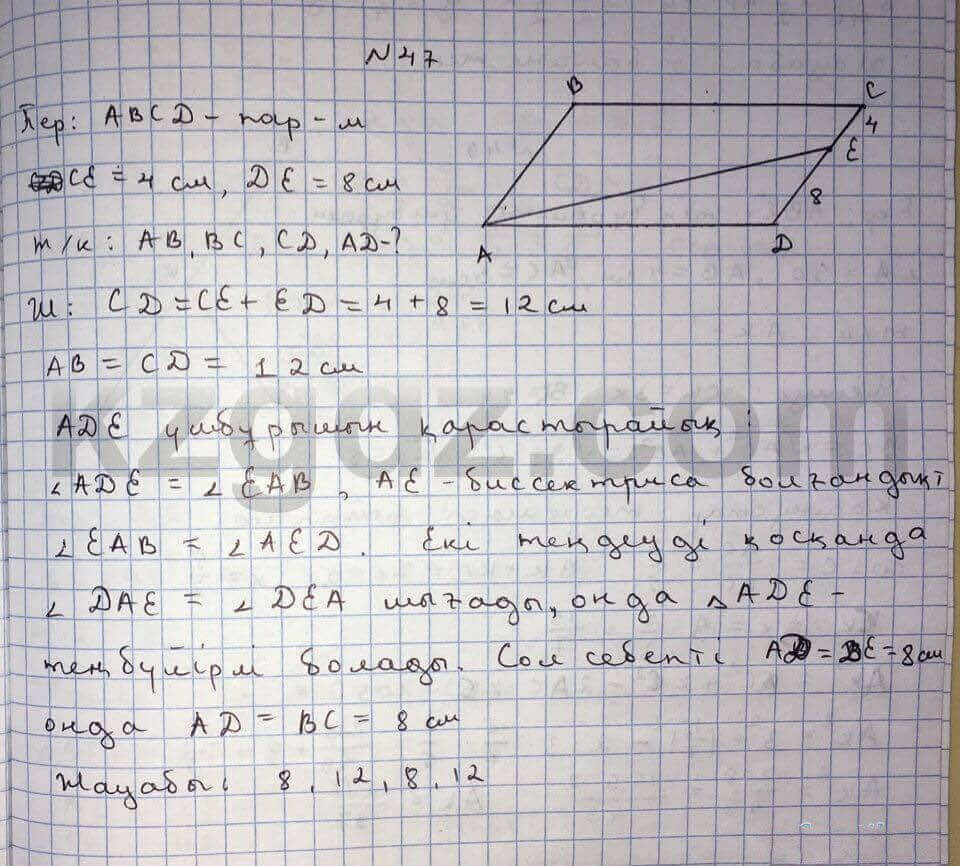 N 47
Бер: ABCD - пар - м
CE = 4 см, DE = 8 см
т/к: AB, BC, CD, AD-?
B
C
4
E
8
A
D
Ш: CD = CE + ED = 4 + 8 = 12 см
AB = CD = 12 см
ADE үшбұрышын қарастырайық:
∠ADE = ∠EAB, AE - биссектриса болғандықт
∠EAB = ∠AED. Екі теңдеуді қосқанда
∠DAE = ∠DEA шығады, онда △ADE -
теңбүйірлі болады. Сол себепті AD = DE = 8 см
онда AD = BC = 8 см
Жауабы: 8, 12, 8, 12
kzgdz.com